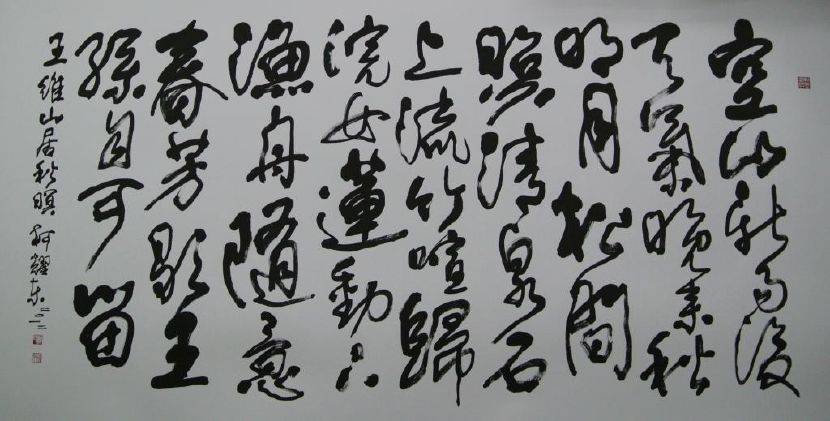 空山新雨後
天氣晚来秋
明月松間
照清泉石
上流竹喧歸
浣女蓮動下
漁舟隨意
春芳歇王
孫自可留
王維山居秋暝 耀东